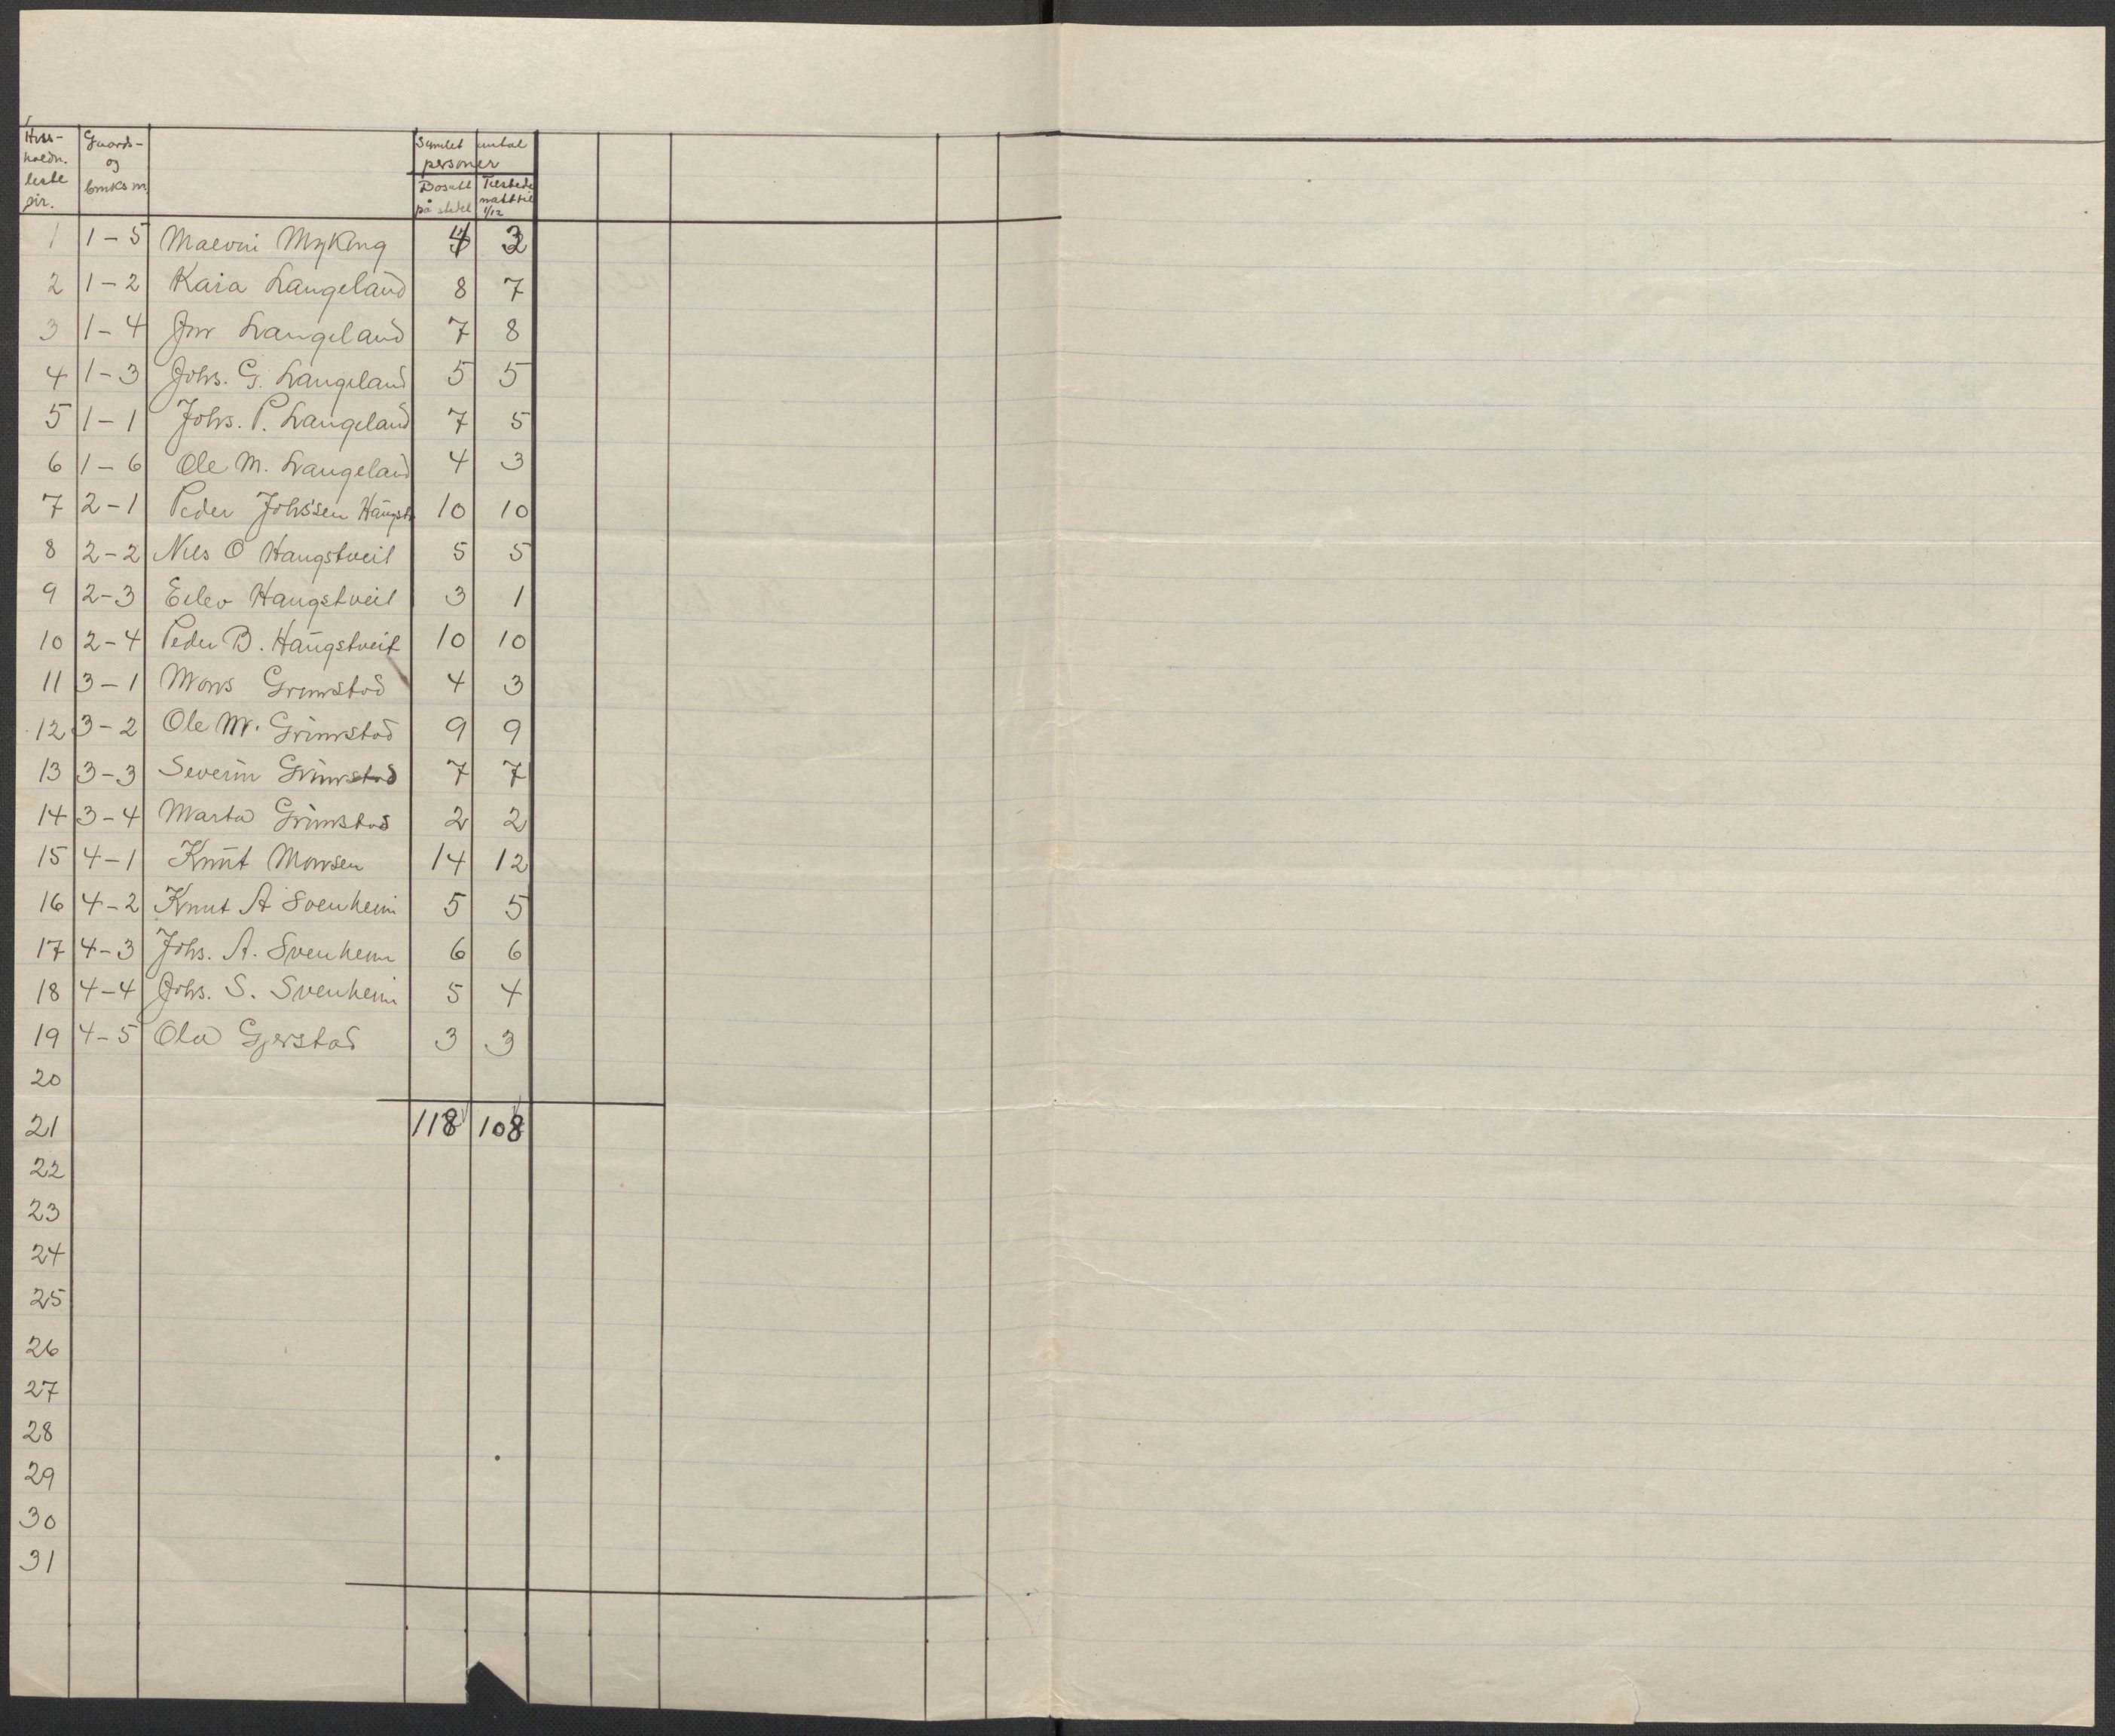 Hus- Gaards- Samlet antal
holdn. og personer
liste bruks nr. Bosatt Tilstede
nr. på stedet natt til 1/12
1 1-5 Malvin Myking 4 3
2 1-2 Kaia Langeland 8 7
3 1-4 Jon Langeland 7 8
4 1-3 Johs. G. Langeland 5 5
5 1-1 Johs. P. Langeland 7 5
6 1-6 Ole M. Langeland 4 3
7 2-1 Peder Johssen Haugst 10 10
8 2-2 Nils O Haugstveit 5 5
9 2-3 Eilev Haugstveit 3 1
10 2-4 Peder B. Haugstveit 10 10
11 3-1 Mons Grimstad 4 3
12 3-2 Ole M. Grimstad 9 9
13 3-3 Severin Grimstad 7 7
14 3-4 Marta Grimstad 2 2
15 4-1 Knut Monsen 14 12
16 4-2 Knut A Svenheim 5 5
17 4-3 Johs. A. Svenheim 6 6
18 4-4 Johs. S. Svenheim 5 4
19 4-5 Ola Gjerstad 3 3
20
21 118 108
22
23
24
25
26
27
28
29
30
31